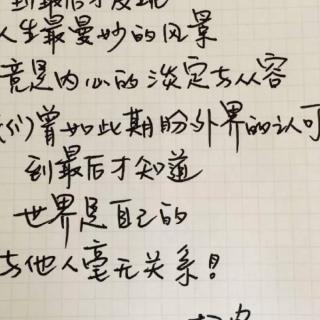 到最后才发现
人生最曼妙的风景
竟是内心的淡定与从容
我们曾如此期盼外界的认可
到最后才知道
世界是自己的
与他人毫无关系！